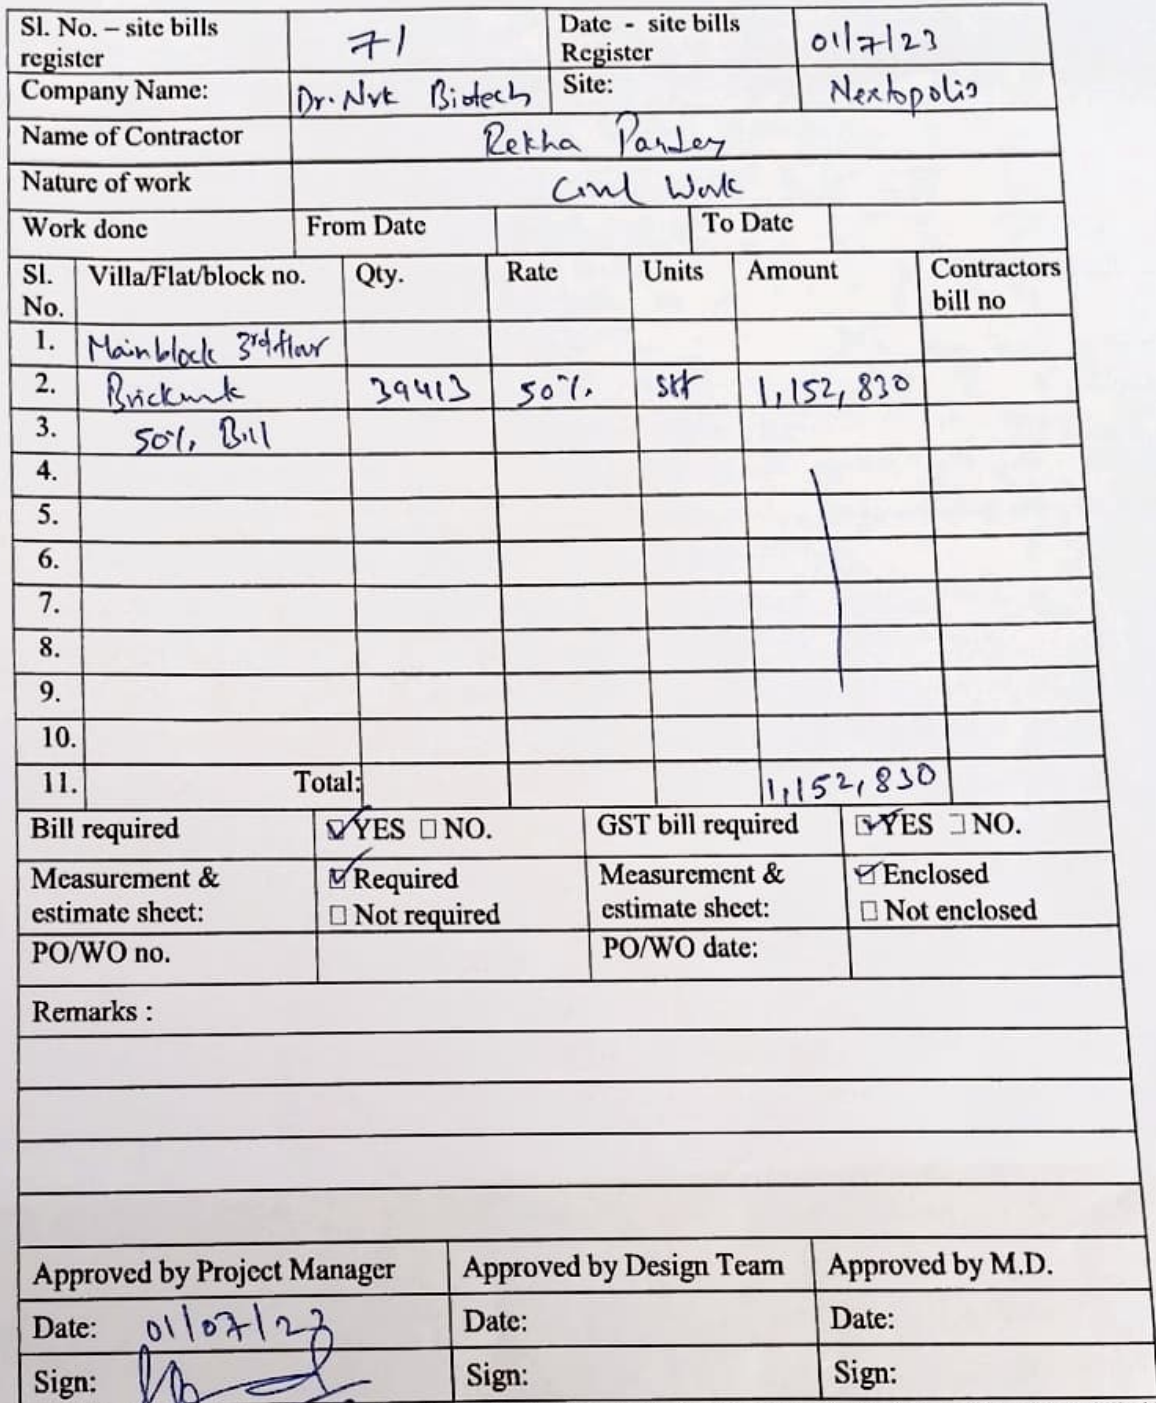 Sl. No. – site bills register 71 Date - site bills Register 01/7/23
Company Name: Dr. Nrk Biotech Site: Nextopolis
Name of Contractor Rekha Pandey
Nature of work Civil Work
Work done From Date To Date
Sl. No. Villa/Flat/block no. Qty. Rate Units Amount Contractors bill no
1. Main block 3rd floor
2. Brickwork 39413 50% sft 1,152,830
3. 50% Bill
4.
5.
6.
7.
8.
9.
10.
11. Total: 1,152,830
Bill required ☑YES ☐NO. GST bill required ☑YES ☐NO.
Measurement & estimate sheet: ☑Required ☐Not required Measurement & estimate sheet: ☑Enclosed ☐Not enclosed
PO/WO no. PO/WO date:
Remarks :
Approved by Project Manager Approved by Design Team Approved by M.D.
Date: 01/07/23 Date: Date:
Sign: Sign: Sign: